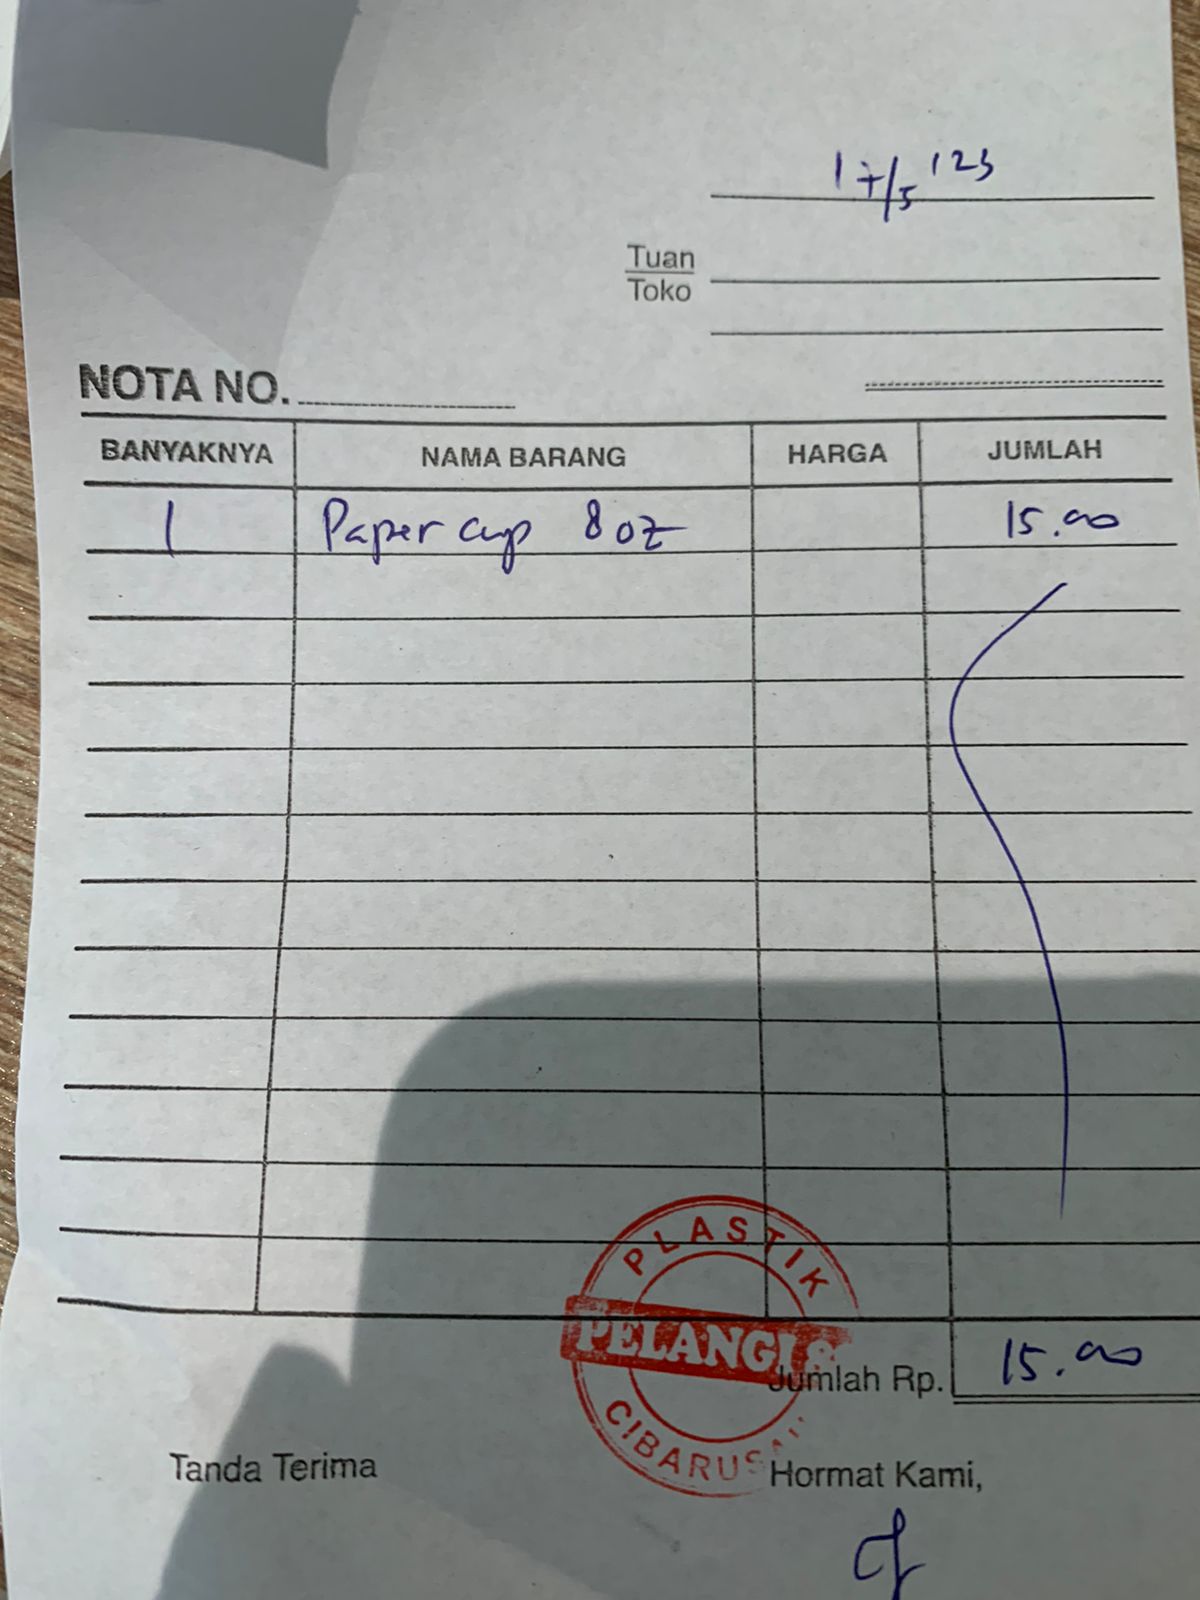 17/5 '23
Tuan
Toko
NOTA NO.
BANYAKNYA NAMA BARANG HARGA JUMLAH
1 Paper cup 8 oz 15.00
PLASTIK
PELANGI 8
CIBARUSAH
Jumlah Rp. 15.00
Tanda Terima Hormat Kami,